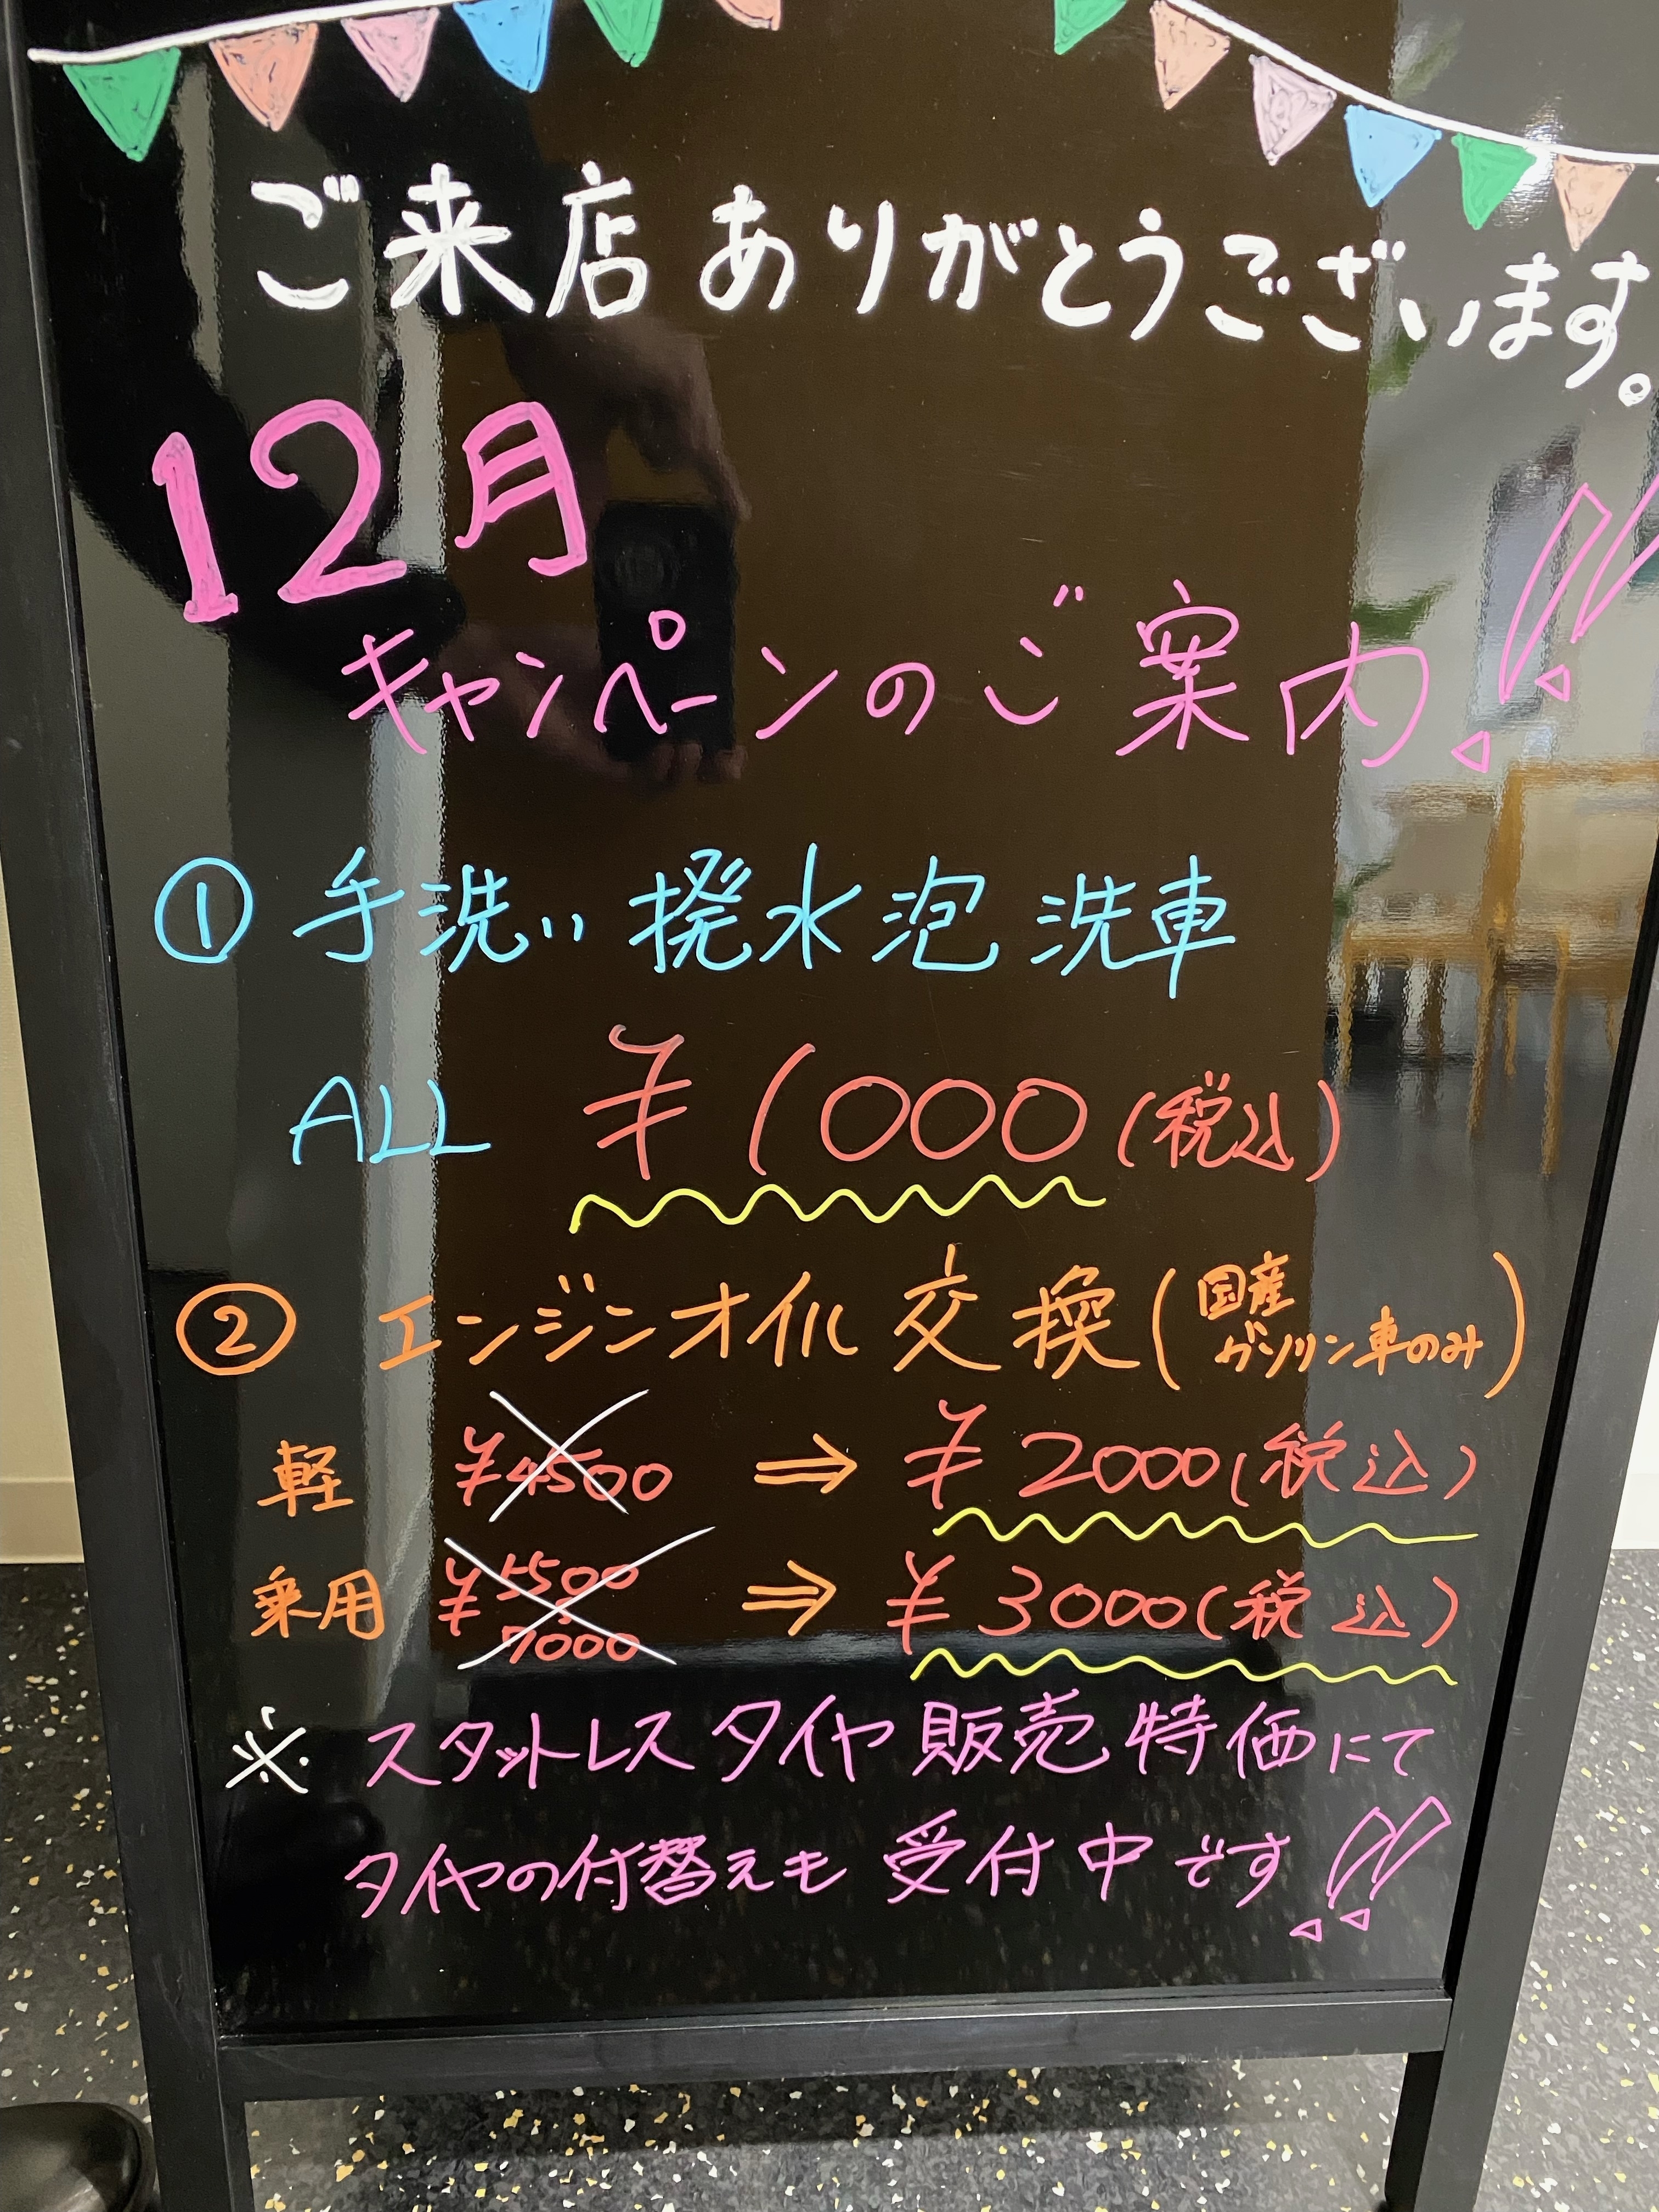 ご来店ありがとうございます。
12月
キャンペーンのご案内!!
① 手洗い 撥水泡洗車
ALL ¥1000(税込)
② エンジンオイル交換(国産ガソリン車のみ)
軽 ¥4500 ⇒ ¥2000(税込)
乗用 ¥ 7000 ⇒ ¥3000(税込)
※ スタットレスタイヤ販売特価にて
タイヤの付替えも受付中です!!